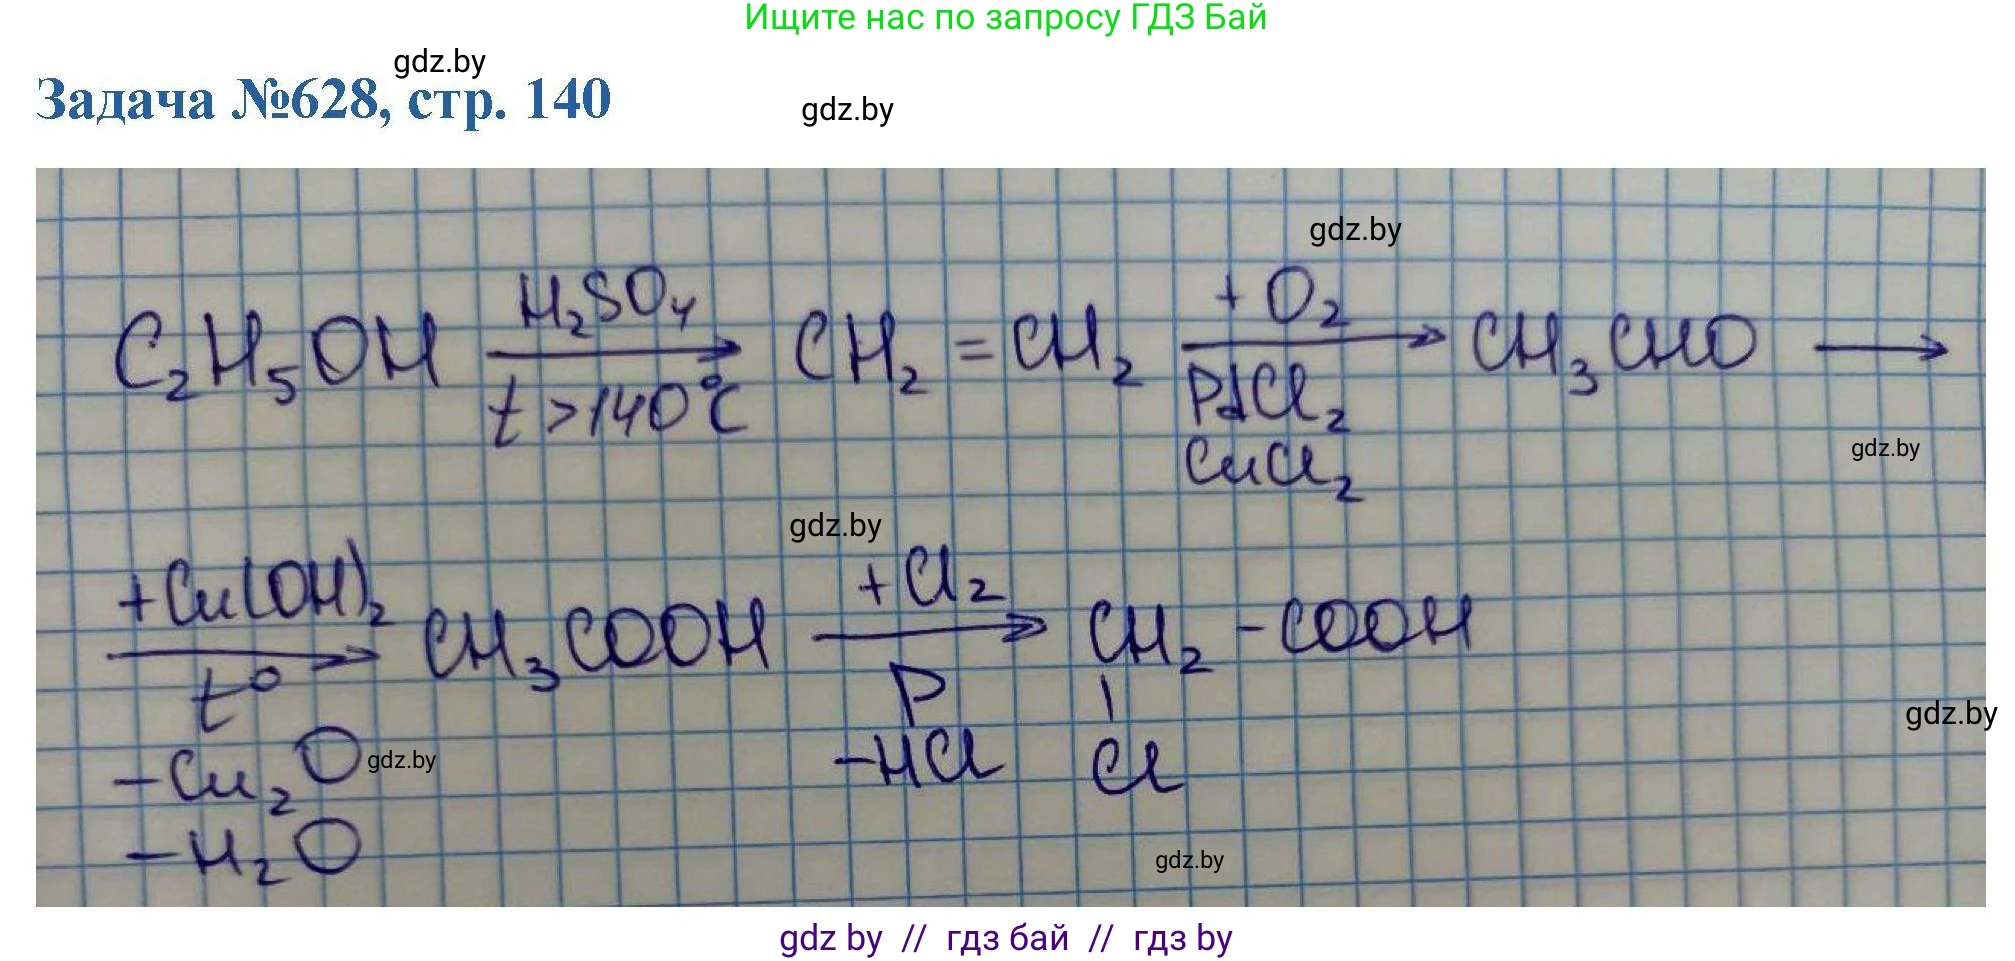 Ищите нас по запросу ГДЗ Бай
gdz.by
Задача №628, стр. 140
gdz.by
gdz.by
C₂H₅OH —H₂SO₄, t>140°C→ CH₂=CH₂ —+O₂, PdCl₂, CuCl₂→ CH₃CHO →
gdz.by
gdz.by
—+Cu(OH)₂, t°, -Cu₂O, -H₂O→ CH₃COOH —+Cl₂, P, -HCl→ CH₂-COOH
gdz.by
Cl
gdz.by
gdz.by
gdz by // гдз бай // гдз by